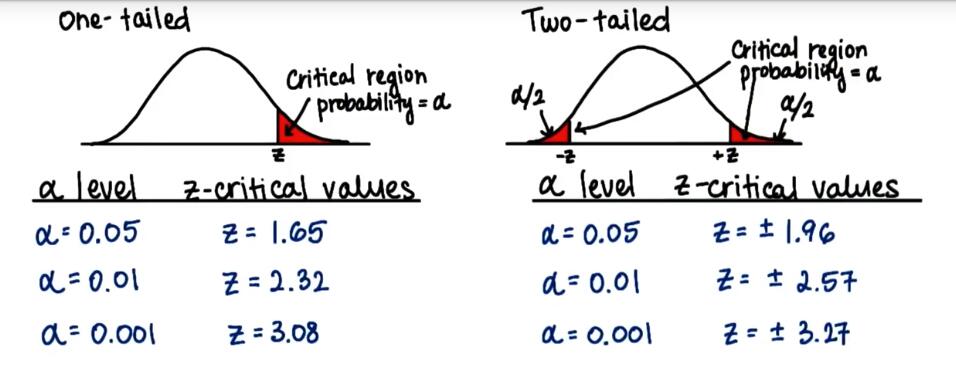 One-tailed
Critical region
probability = α
z
α level z-critical values
α = 0.05 z = 1.65
α = 0.01 z = 2.32
α = 0.001 z = 3.08
Two-tailed
Critical region
probability = α
α/2
α/2
-z +z
α level z-critical values
α = 0.05 z = ± 1.96
α = 0.01 z = ± 2.57
α = 0.001 z = ± 3.27